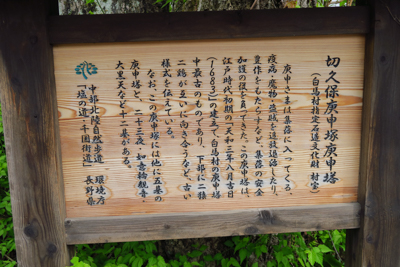 切久保庚申塚庚申塔
(白馬村指定石造文化財 村宝)
庚申さまは集落に入ってくる、
疫病・魔物・盗賊を追放退治したり、
豊作をもたらすなど、集落の安全
加護の役を負ってきた。この庚申塔は、
江戸時代初期の天和三年八月吉日
(1683)の建立で、白馬村の庚申塔
中最古のものであり、下部に二猿
二鶏が互いに向き合うなど、古い
様式を伝えている。
なお、この庚申塚には他に五基の
庚申塔と、二十三夜、如意輪観音、
大黒天など十二基がある。
中部北陸自然歩道 環境省
「塩の道」千国街道 長野県